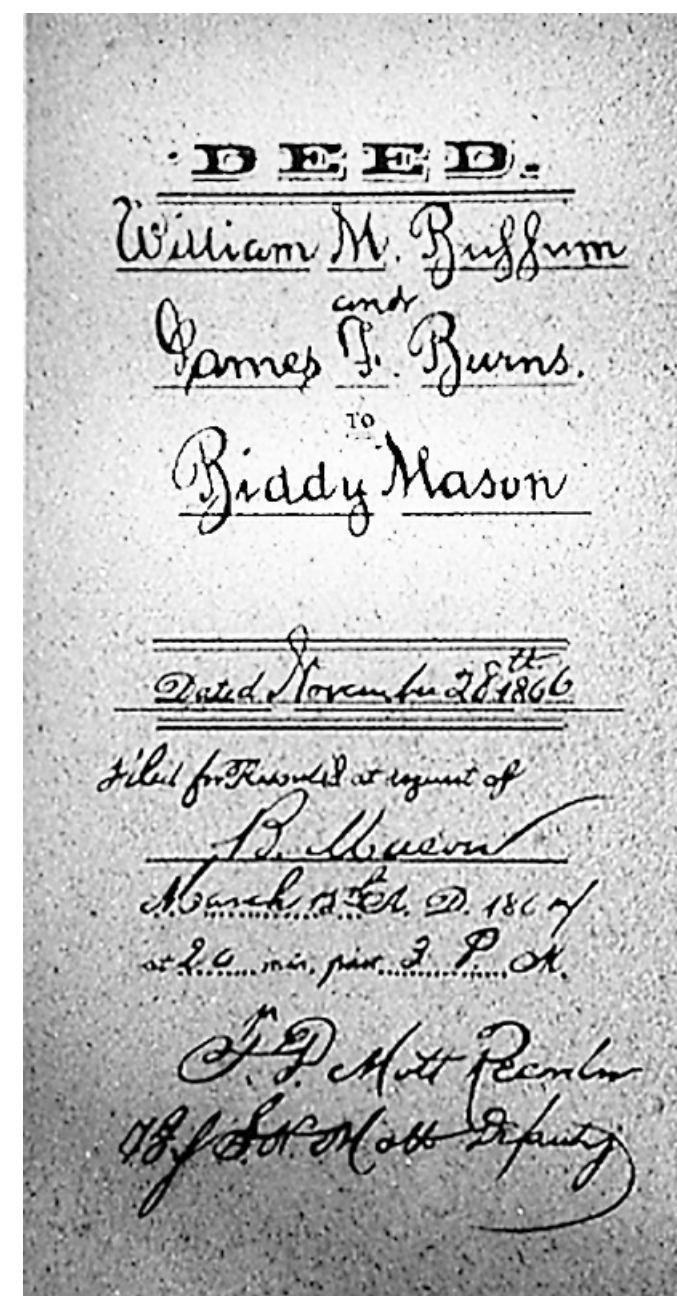 DEED.
William M. Buffum
and
James F. Burns.
TO
Biddy Mason
Dated November 28th 1866
Filed for Record at request of
B. Mason
March A. D. 1867
at 20 min. past 2 P. M.
T. D. Mott Recorder
By S. N. Mott Deputy